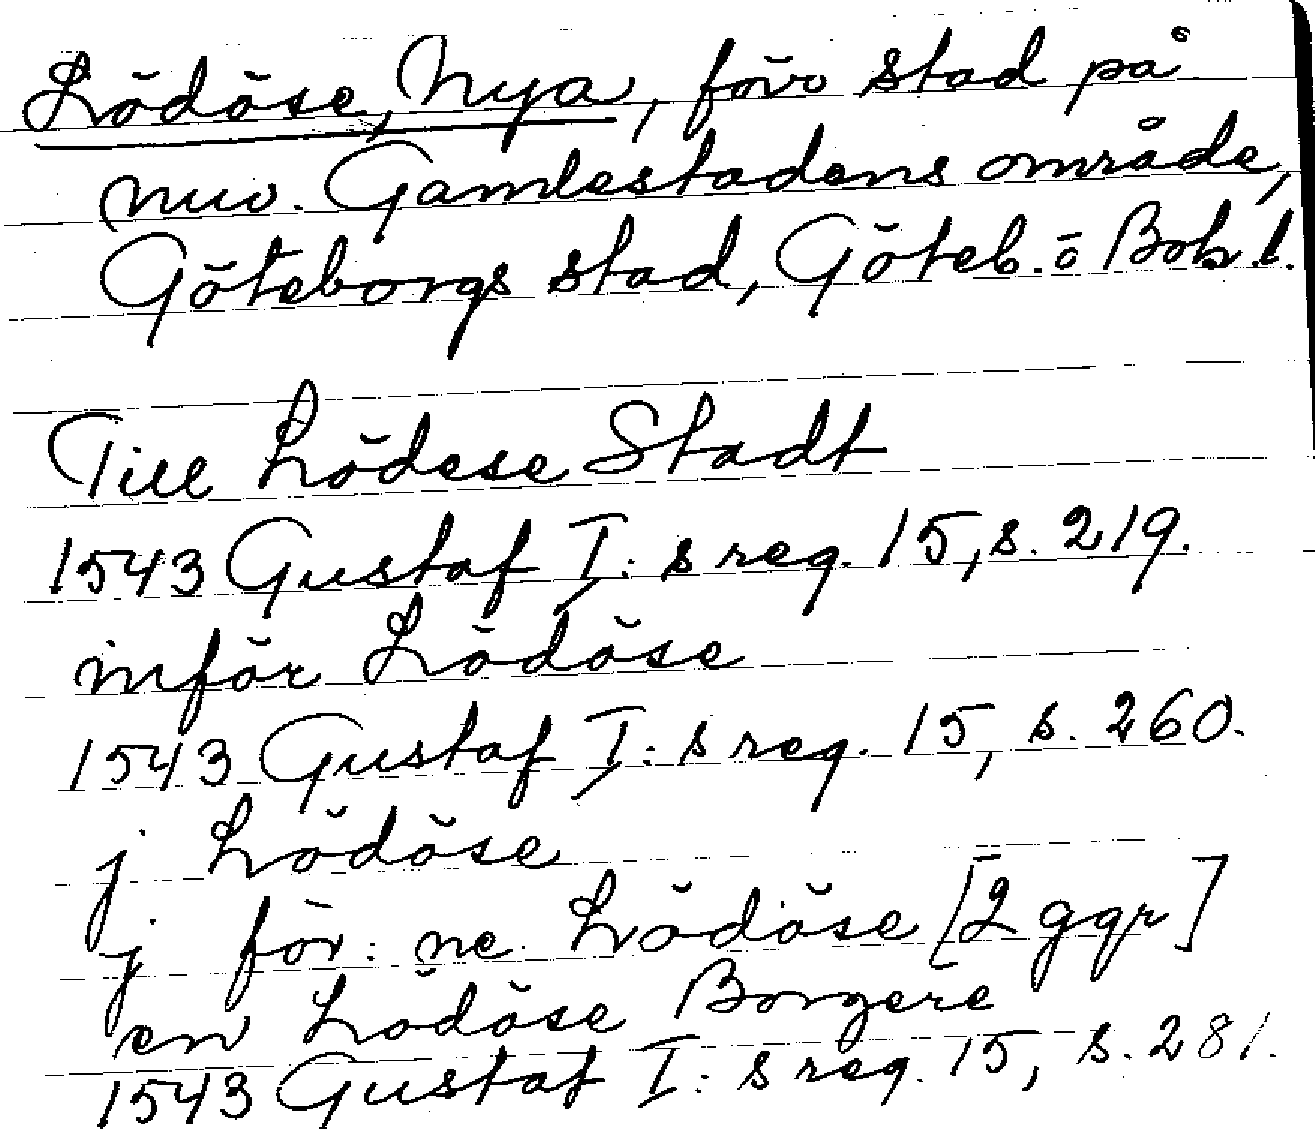 Lödöse, Nya, förr stad på
nuv. Gamlestadens område,
Göteborgs stad, Göteb. o Boh. l.
Till Lödese Stadt
1543 Gustaf I:s reg. 15, s. 219.
inför Lödöse
1543 Gustaf I:s reg. 15, s. 260.
j Lödöse
j för: ne Lödöse [2 ggr]
en Lödöse Borgere
1543 Gustaf I:s reg. 15, s. 281.